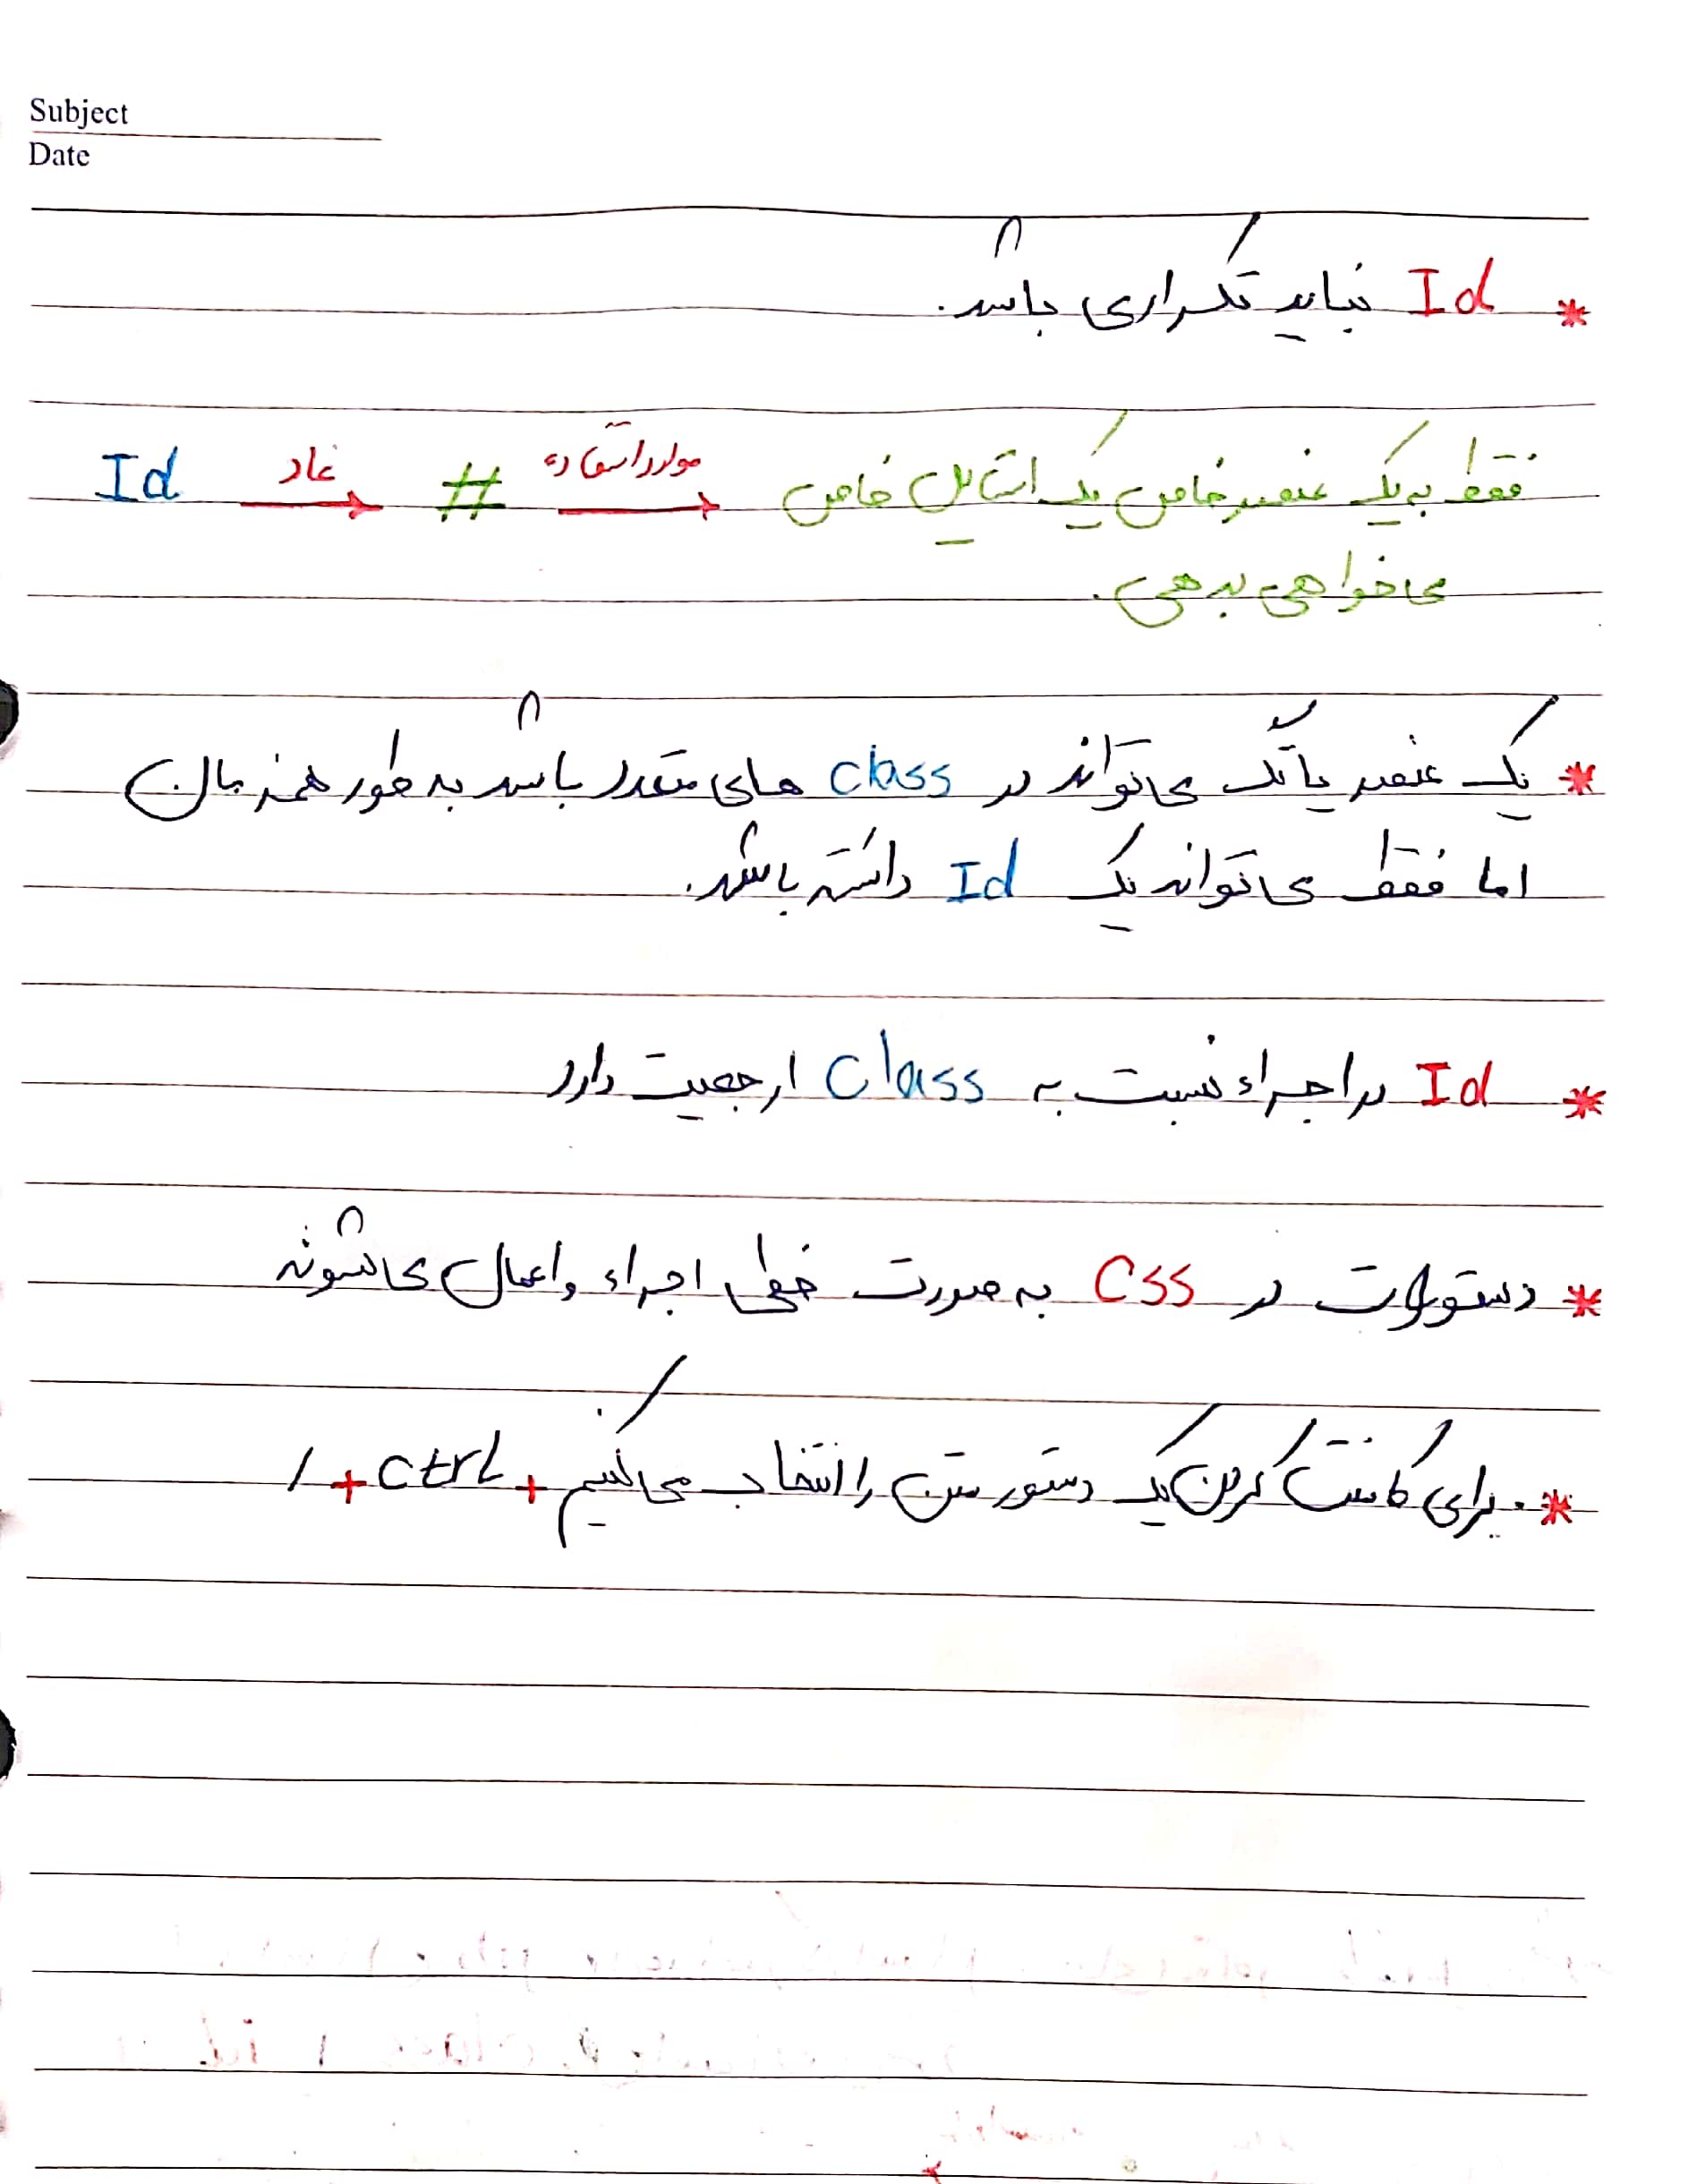 Subject
Date
* Id نباید تکراری باشد.
Id نماد → # موارد استفاده → فقط به یک عنصر خاص یک استایل خاص
می‌خواهی بدهی.
* یک عنصر یا تگ می‌تواند در class های متعدد باشد به طور همزمان
اما فقط می‌تواند یک Id داشته باشد.
* Id در اجراء نسبت به class ارجعیت دارد
* دستورات در CSS به صورت خطی اجراء و اعمال می‌شوند
* برای کامنت کردن یک دستور متن را انتخاب می‌کنیم + ctrl + /